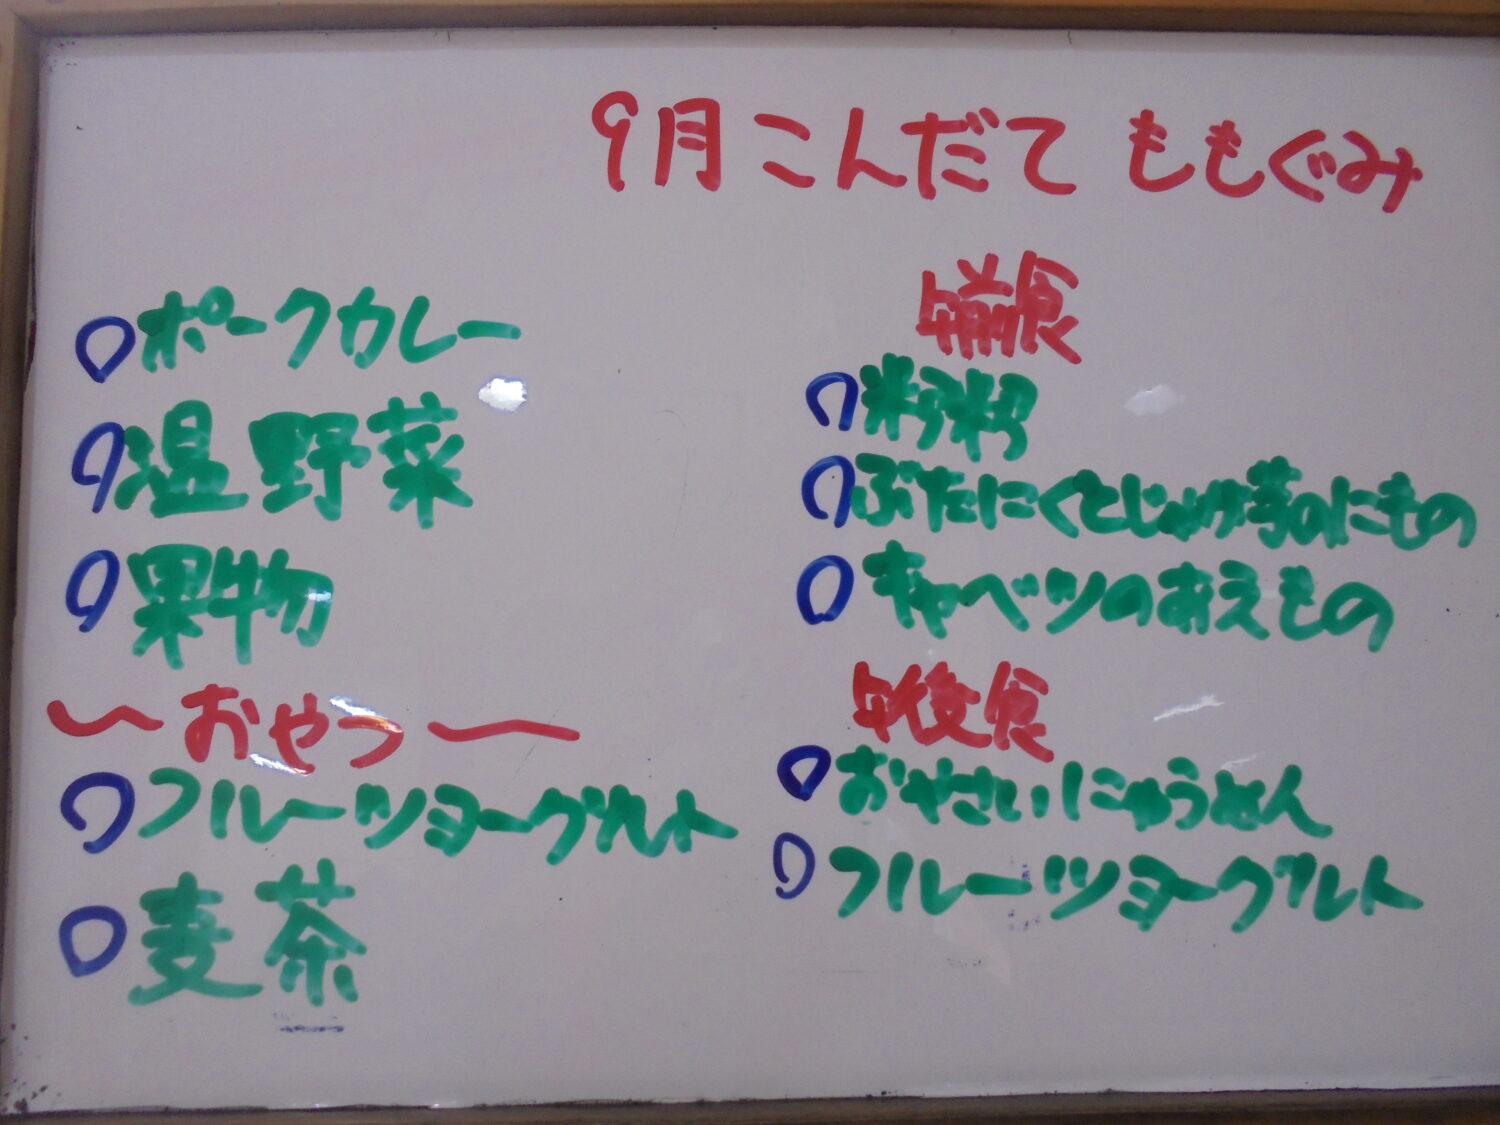 9月 こんだて ももぐみ
○ポークカレー
○温野菜
○果物
〜おやつ〜
○フルーツヨーグルト
○麦茶
午前食
○米粥
○ぶたにくとじゃが芋のにもの
○キャベツのあえもの
午後食
○おやさいにゅうめん
○フルーツヨーグルト